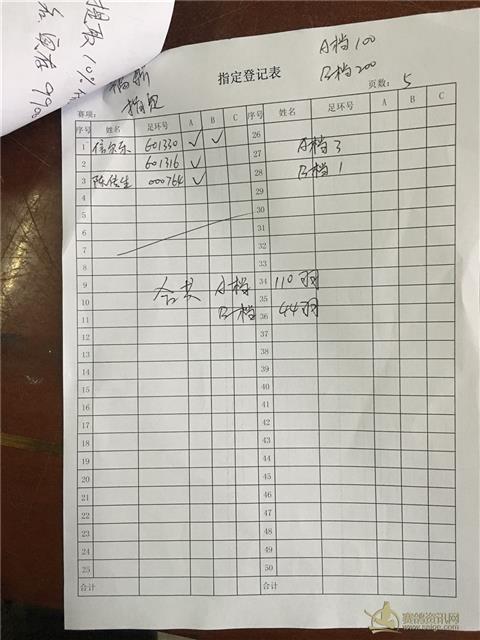 提取10%
A档100
指定登记表
B档200
指定
赛项:
页数: 5
序号 姓名 足环号 A B C 序号 姓名 足环号 A B C
1 601330 ✓ ✓ 26
2 601316 ✓ 27 A档 3
3 000764 ✓ 28 B档 1
4 29
5 30
6 31
7 32
8 33
9 合共 A档 34 110羽
10 B档 35 44羽
11 36
12 37
13 38
14 39
15 40
16 41
17 42
18 43
19 44
20 45
21 46
22 47
23 48
24 49
25 50
合计 合计
赛鸽资讯网